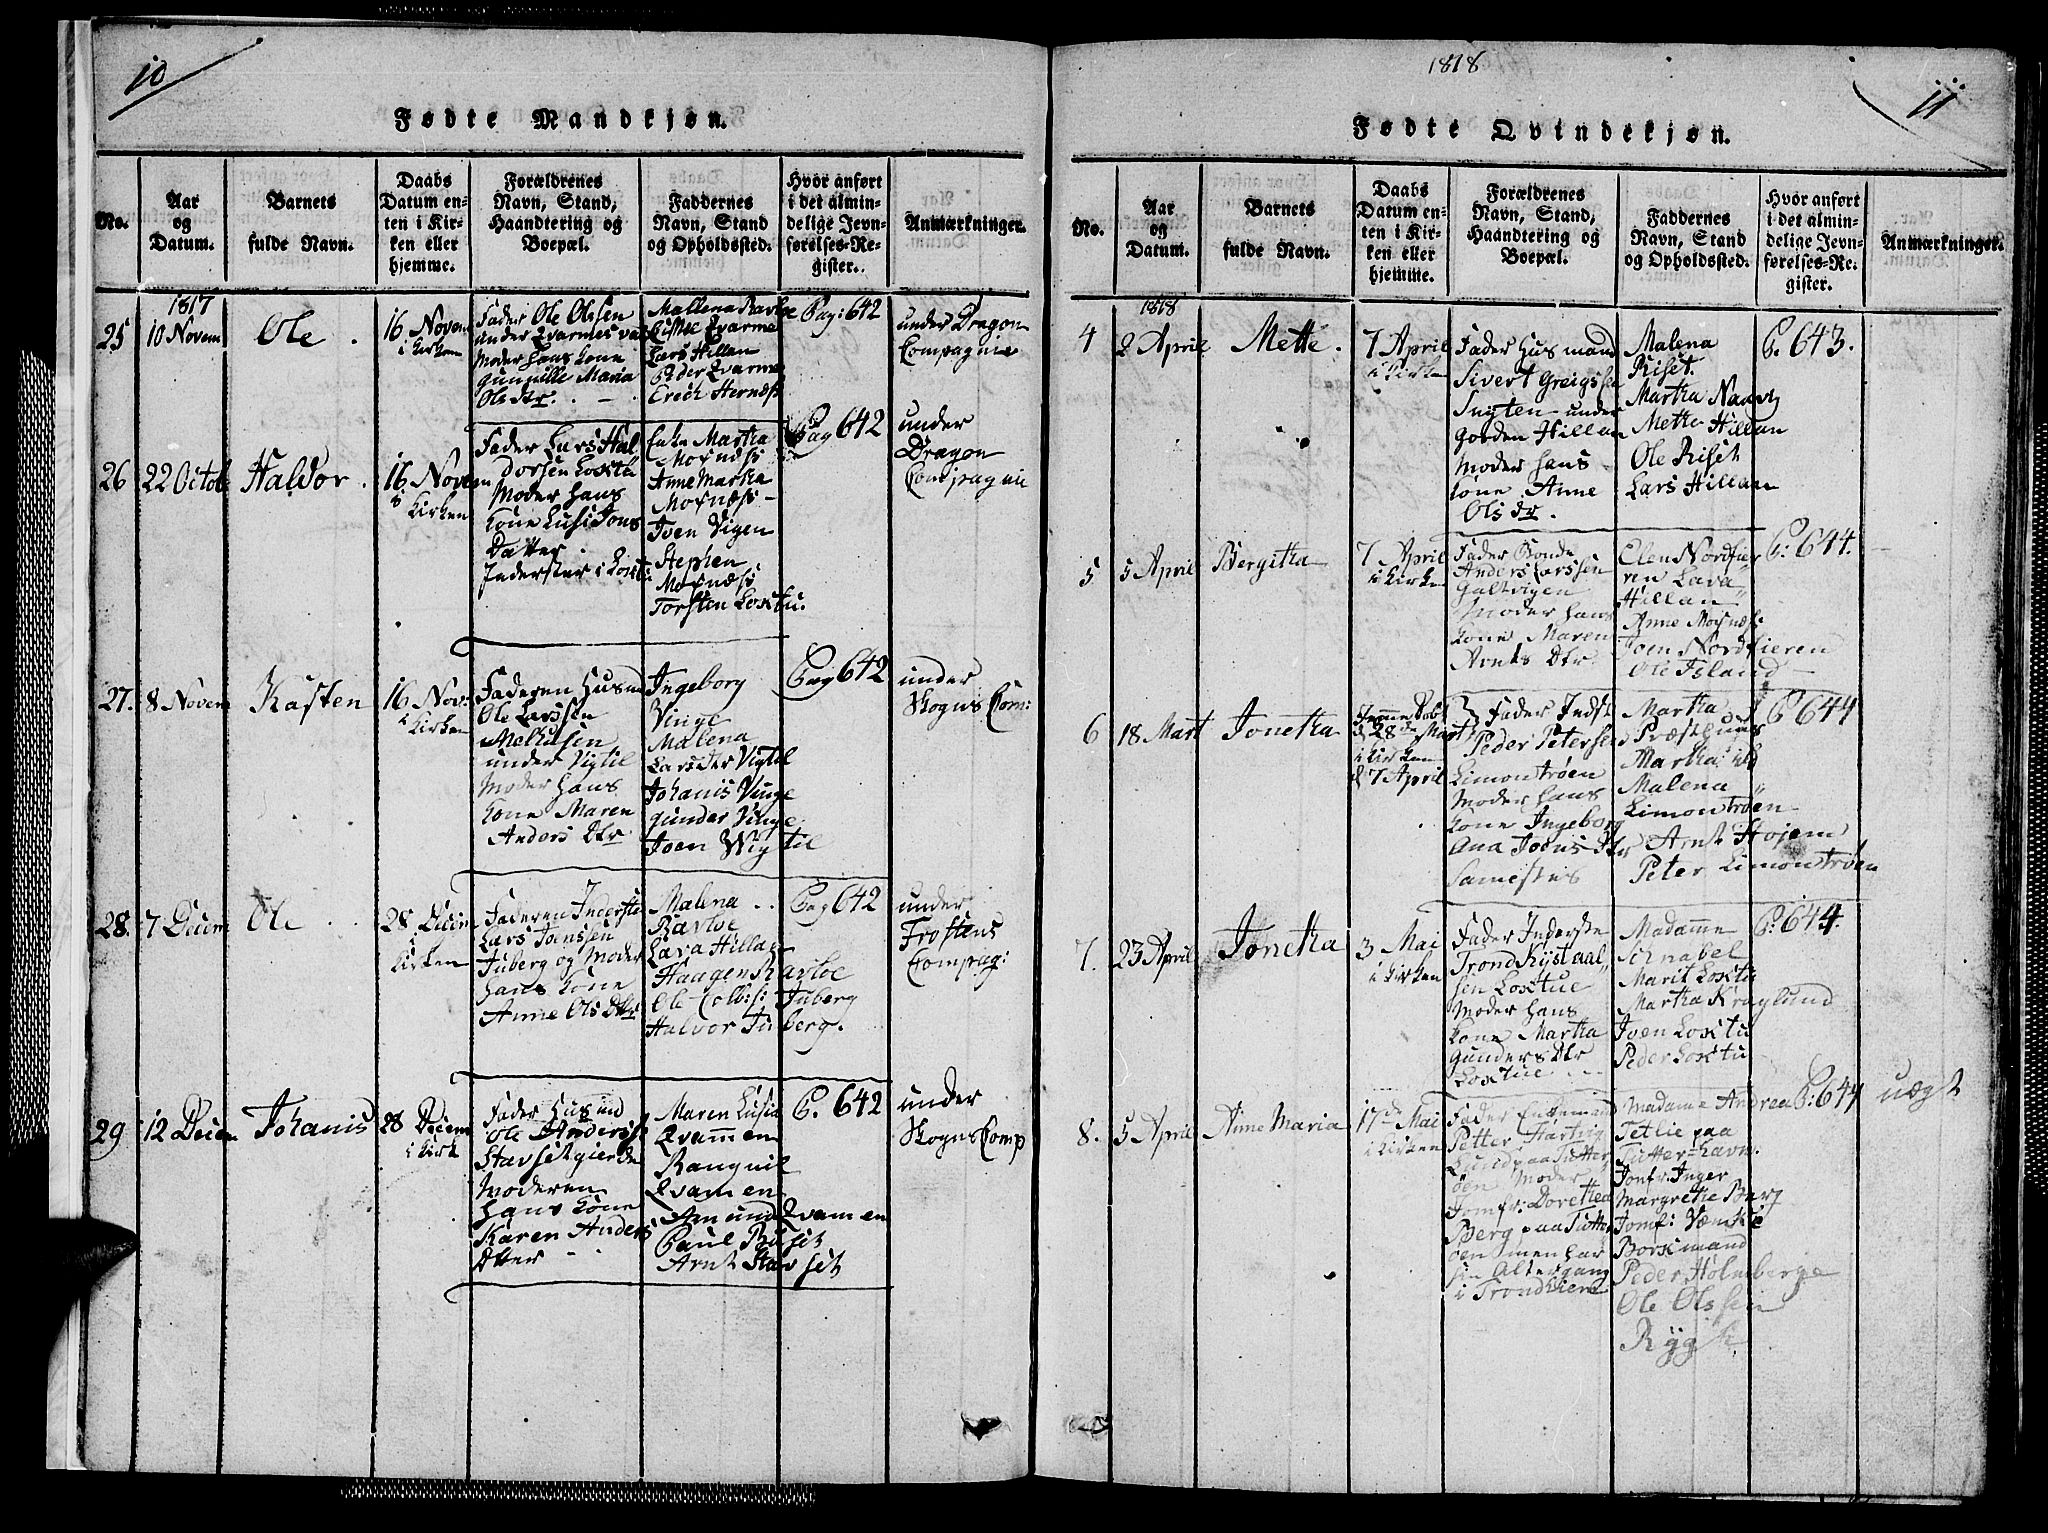 10
Fødte Mandkjøn.
No.
Aar
og
Datum.
Barnets
fulde Navn.
Daabs
Datum en-
ten i Kir-
ken eller
hjemme.
Forældrenes
Navn, Stand,
Haandtering og
Boepæl.
Faddernes
Navn, Stand
og Opholdssted.
Hvor anført
i det almin-
delige Jevn-
førelses-Re-
gister.
Anmærkninger.
1817
25
10 Novem
Ole
16 Novem
i Kirken
Fader Ole Olsen
under Qvarmes
Moder hans Kone
Gunnille Maria
Ols Dtr.
Mallena Ravloe
Qvarme
Lars Hillan
Peder Qvarme
Erich Hernæs
Pag: 642
under Dragon
Compagnie
26
22 Octob
Haldor
16 Novem
i Kirken
Fader Lars Hal
dorsen Loxtu
Moder hans
Kone Lusi Jons
Datter
Inderster i Loxt:
Enke Martha
Moxnæss
Anne Martha
Moxnæss
Joen Vigen
Stephen
Moxnæss
Torsten Loxtu.
Pag 642
under
Dragon
Compagnie
27.
8 Novem
Kasten
16 Nov:
i Kirken
Faderen Husmd
Ole Larssen
Melhusen
under Vigtil
Moder hans
Kone Maren
Anders Dtr.
Ingeborg
Vinge
Malena
Larsdtr Vigtil
Johanis Vinge
Gunder Vinge
Joen Wigtil
Pag 642
under
Skogns Com:
28.
7 Decem
Ole
28 Decim
i
Kirken
Faderen Inderste
Lars Joenssen
Tuberg og Moder
hans Kone
Anne Ols Dtr
Malena
Ravloe
Lava Hillan
Haagen Ravloe
Ole Tuberg
Halvor Tuberg.
Pag 642
under
Frostens
Compag:
29
12 Decem
Johanis
28 Decem
i Kirk
Fader Husmd
Ole Anderss
Stavsetgierde
Moderen
hans Kone
Karen Anders
Dtter
Maren Lusia
Qvammen
Rangnil
Qvamen
Amund Qvamen
Paul Riset
Arnt Stavset
P. 642
under
Skogns Comp
1818
11
Fødte Qvindekjøn.
No.
Aar
og
Datum.
Barnets
fulde Navn.
Daabs
Datum en-
ten i Kir-
ken eller
hjemme.
Forældrenes
Navn, Stand,
Haandtering og
Boepæl.
Faddernes
Navn, Stand
og Opholdssted.
Hvor anført
i det almin-
delige Jevn-
førelses-Re-
gister.
Anmærkninger.
1818
4
2 April
Mette.
7 April
i Kirken
Fader Husmand
Sivert Greigssen
under
Gorden Hillan
Moder hans
Kone Anne
Ols dr.
Malena
Riset.
Martha
Metta Hillan
Ole Riset
Lars Hillan
P. 643.
5
5 April
Bergitha
7 April
i Kirken
Fader Bonde
Anders Larssen
Galtvigen
Moder hans
Kone Maren
Arnts Dtr.
Elen Nordfier
ren Lava
Hillan
Anne Moxnæs:
Joen Nordfieren
Ole Island
P: 644.
6
18 Mart
Jonetha
d 28de Mart
i Kirken
d 7 April
Fader Indst
Peder Petersen
Limonstrøen
Moder hans
Kone Ingeborg
Ana Joens Dtr
Samestes
Martha
Præsthuus
Martha
Malena
Limonstrøen
Arnt Hojem
Peter Limonstrøen
P 644
7.
23 April
Jonetha
3 Mai
i Kirken
Fader Inderste
Trond Kystaal
sen Loxtue
Moder hans
Kone Martha
Gunders Dtr
Loxtue
Madamme
Schnabel
Marit Loxtu
Martha Kraglund
Joen Loxtu
Peder Loxtu
P: 644.
8.
5 April
Anne Maria
17de Mai
i Kirken
Fader Enkemand
Petter Hartvig
Lund paa Tutter
øen Moder
Jomfr: Dorethea
Berg paa Tutter
øen men har
sin Altergang
i Trondhiem
Madame Andrea
Tetlie paa
Tutter=havn.
Jonfr. Inger
Margrethe Berg
Jomf:
Borxmand
Peder Holmberge
Ole Olssen
Ryg
P: 644
uægt